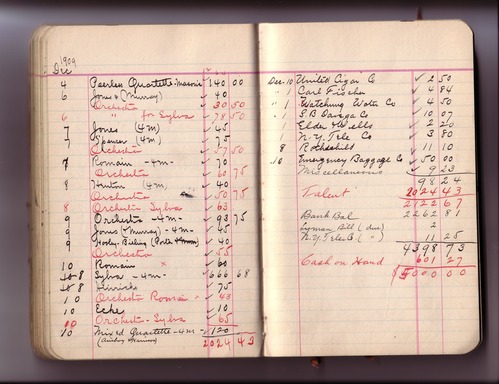 1909
Dec
4 Peerless Quartette - Masonic 140 00
6 Jones & (Murray) 40
Orchestra 30 50
6 " for Sylva 78 50
7 Jones (4m) 45
7 Spencer (4m) 75
Orchestra 50
7 Romain - 4m - 70
Orchestra 60 75
8 Hunton (4m) 40
Orchestra 50 75
8 Orchestra Sylva 63
9 Orchestra - 4m - 93 75
9 Jones (Murray) - 4m - 45
9 40
Orchestra 55
10 Romain 60
8 Sylva - 4m - 666 68
8 Hinrichs 75
10 Orchestra Romain 43
10 Eche 10
10 Orchestra - Sylva 65
10 Mixed Quartette - 4m - 120
2024 43
Dec. 10 United Cigar Co 2 50
" 1 Carl Fischer 4 84
" 1 Watchung Water Co 4 50
" 1 S.B. Davega Co 10 07
" 1 Elder & Wells 2 20
" 1 N.Y. Tele Co 3 80
" 8 Rothschild 11 10
" 10 Emergency Baggage Co 50 00
Miscellaneous 9 23
98 24
Talent 2024 43
2122 67
Bank Bal 2262 81
Lyman Bill (due) 2
N.Y. Tele Co ( " ) 11 25
4398 73
Cash on Hand 601 27
5000 00